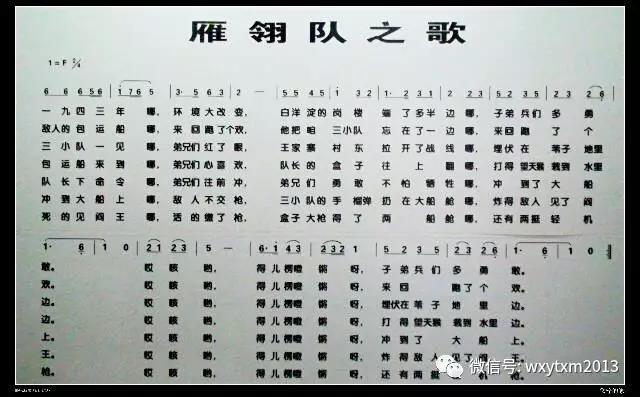 雁翎队之歌
1=F 2/4
6 6 6 5 6 1 7 6 5 3· 5 6 3 2 — 5 5 4 5 1 3 2 1· 2 3 1 2 1 2 3 5 2 2 1 6
一九四三年哪，环境大改变，白洋淀的岗楼端了多半边哪，子弟兵们多勇
敌人的包运船哪，来回跑了个欢，他把咱三小队忘在了一边哪，来回跑了个
三小队一见哪，弟兄们红了眼，王家寨村东拉开了战线哪，埋伏在苇子地里
包运船来到哪，弟兄们心喜欢，队长的盒子往上翻哪，打得望天猴栽到水里
队长下命令哪，弟兄们往前冲，弟兄们勇敢不怕牺牲哪，冲到了大船
冲到大船上哪，敌人不交枪，三小队的手榴弹扔在大船舱哪，炸得敌人见了阎
死的见阎王哪，活的缴了枪，盒子大枪得了两船舱哪，还有两挺轻机
1· 6 1 0 2 1 2 3 5 — 6· 1 4 3 2 3 2 1 2 2 3 1 2 1· 6 1 0
敢。哎咳哟，得儿楞噔锵呀，子弟兵们多勇敢。
欢。哎咳哟，得儿楞噔锵呀，来回跑了个欢。
边。哎咳哟，得儿楞噔锵呀，埋伏在苇子地里边。
边。哎咳哟，得儿楞噔锵呀，打得望天猴栽到水里边。
上。哎咳哟，得儿楞噔锵呀，冲到了大船上。
王。哎咳哟，得儿楞噔锵呀，炸得敌人见了阎王。
枪。哎咳哟，得儿楞噔锵呀，还有两挺轻机枪。
微信号: wxytxm2013